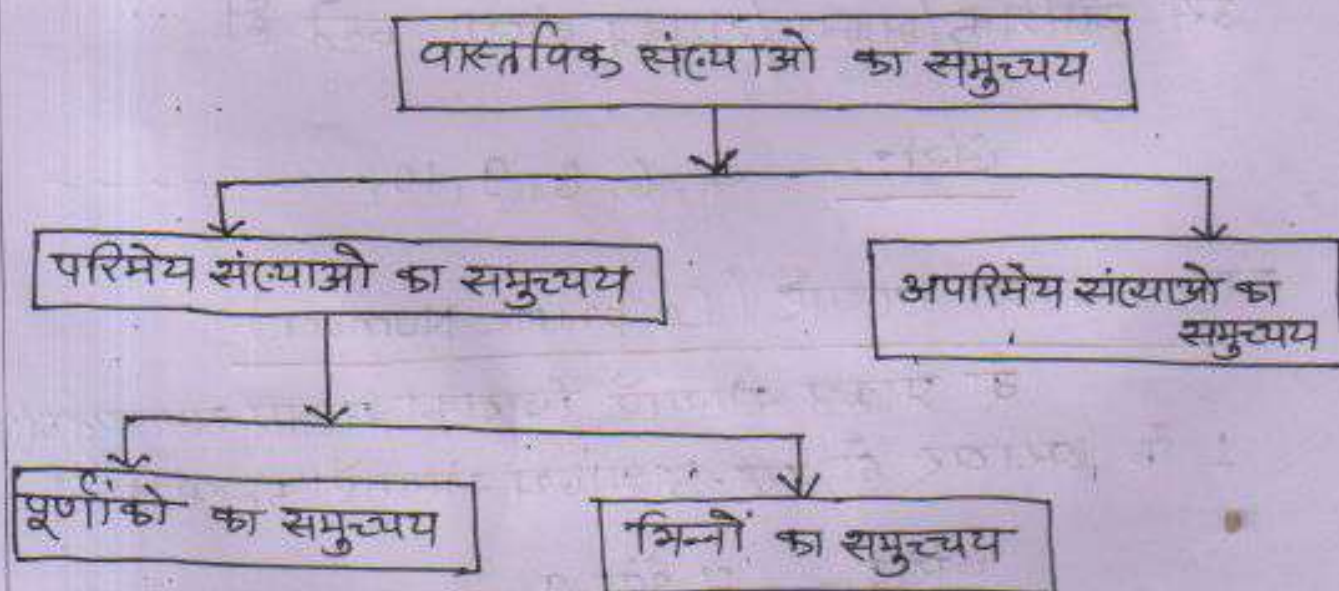 वास्तविक संख्याओ का समुच्चय
परिमेय संख्याओ का समुच्चय
अपरिमेय संख्याओ का
समुच्चय
पूर्णांको का समुच्चय
भिन्नों का समुच्चय